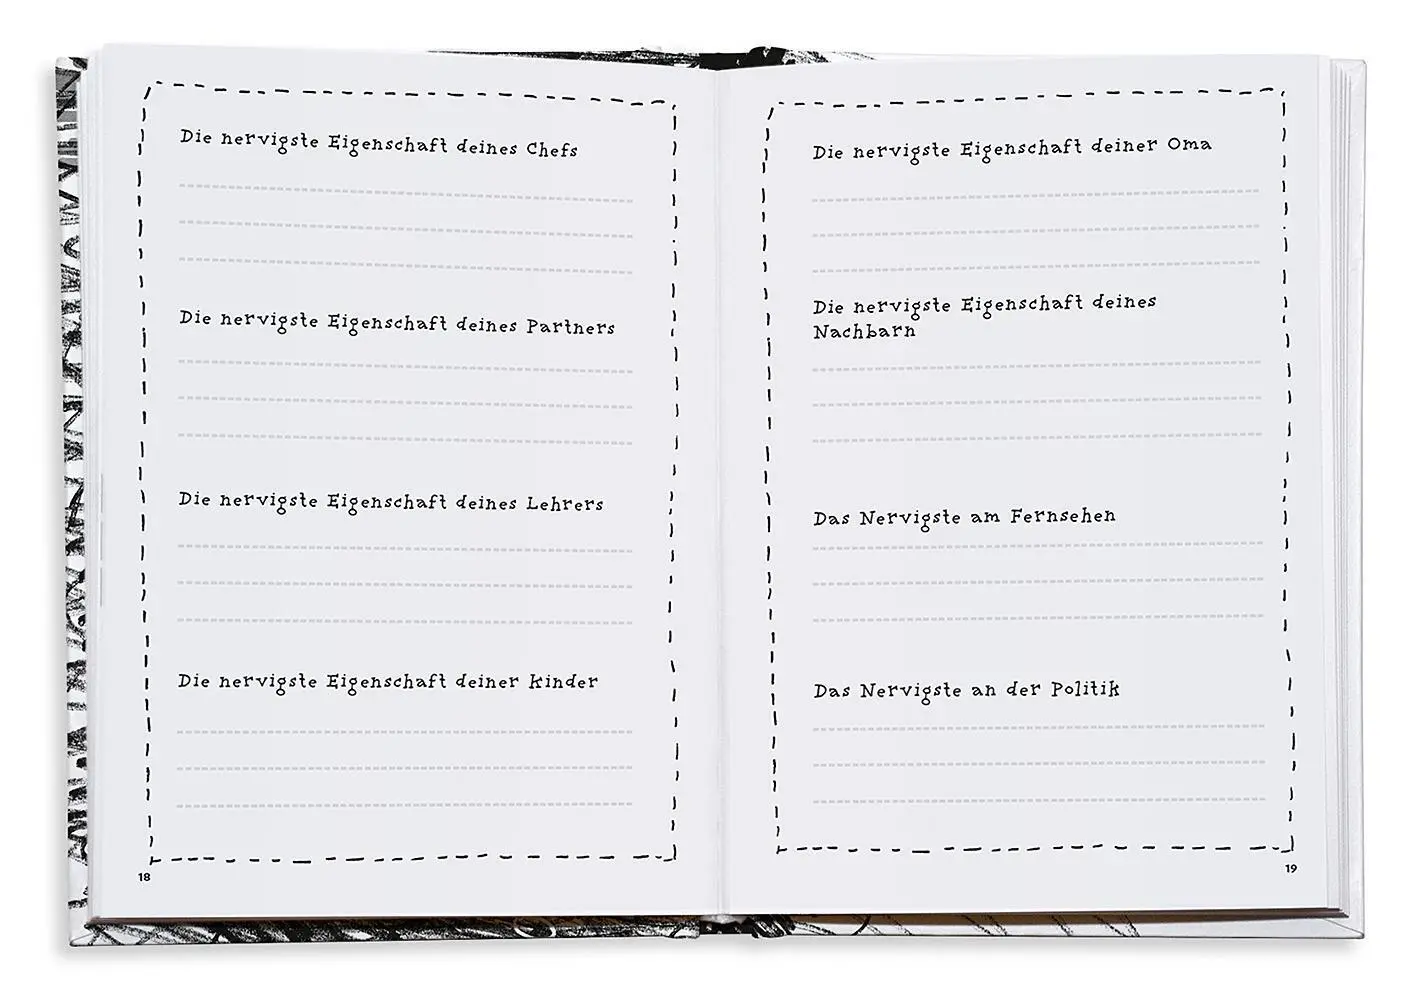 Die nervigste Eigenschaft deines Chefs
Die nervigste Eigenschaft deines Partners
Die nervigste Eigenschaft deines Lehrers
Die nervigste Eigenschaft deiner Kinder
18
Die nervigste Eigenschaft deiner Oma
Die nervigste Eigenschaft deines
Nachbarn
Das Nervigste am Fernsehen
Das Nervigste an der Politik
19